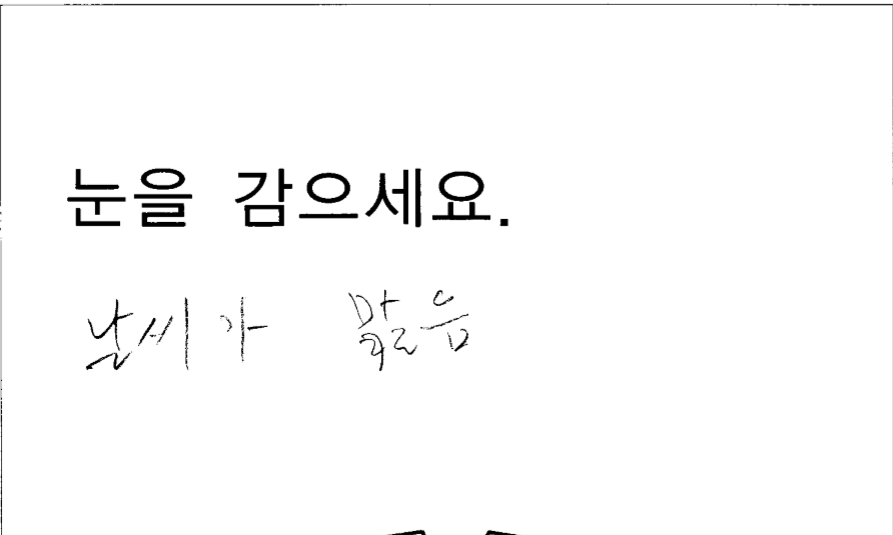 눈을 감으세요.
날씨가 맑음